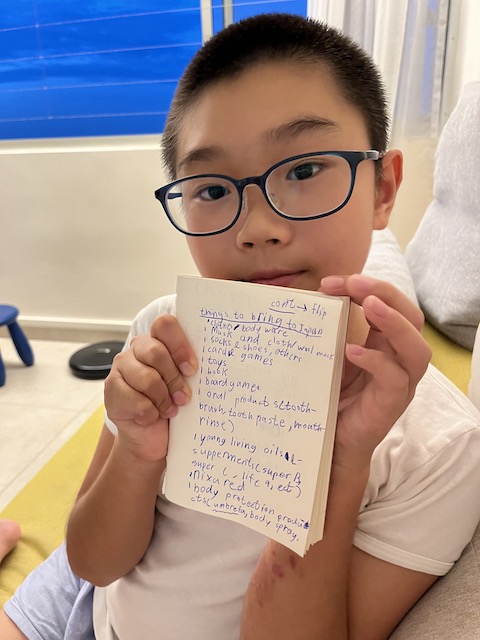 cont → flip
things to bring to Japan
1 clothes/body ware
1 Mask and cloth/wool mask
1 socks & shoes, others
1 card games
1 toys
1 book
1 boardgames
1 oral products(tooth-
brush, toothpaste, mouth-
rinse)
1 young living oils &
supperments(super B,
super C, life 9, ect)
1 Nixured
1 body protection produ
cts(umbrela, body spray,